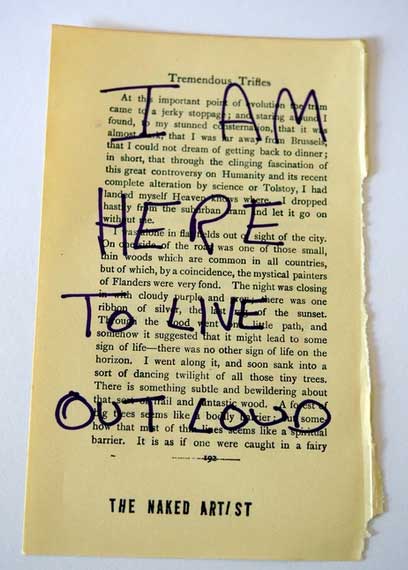 Tremendous Trifles
I AM
HERE
TO LIVE
OUT LOUD
At this important point of evolution the tram
came to a jerky stoppage; and staring around I
found, to my stunned consternation, that it was
almost dark, that I was far away from Brussels,
that I could not dream of getting back to dinner;
in short, that through the clinging fascination of
this great controversy on Humanity and its recent
complete alteration by science or Tolstoy, I had
landed myself Heaven knows where. I dropped
hastily from the suburban tram and let it go on
without me.
I was alone in flat fields out of sight of the city.
On one side of the road was one of those small,
thin woods which are common in all countries,
but of which, by a coincidence, the mystical painters
of Flanders were very fond. The night was closing
in with cloudy purple and grey; there was one
ribbon of silver, the last of the sunset.
Through the wood went little path, and
somehow it suggested that it might lead to some
sign of life—there was no other sign of life on the
horizon. I went along it, and soon sank into a
sort of dancing twilight of all those tiny trees.
There is something subtle and bewildering about
that sort of frail and fantastic wood. A forest of
big trees seems like a bodily barrier; but some-
how that mist of lines seems like a spiritual
barrier. It is as if one were caught in a fairy
192
THE NAKED ARTIST